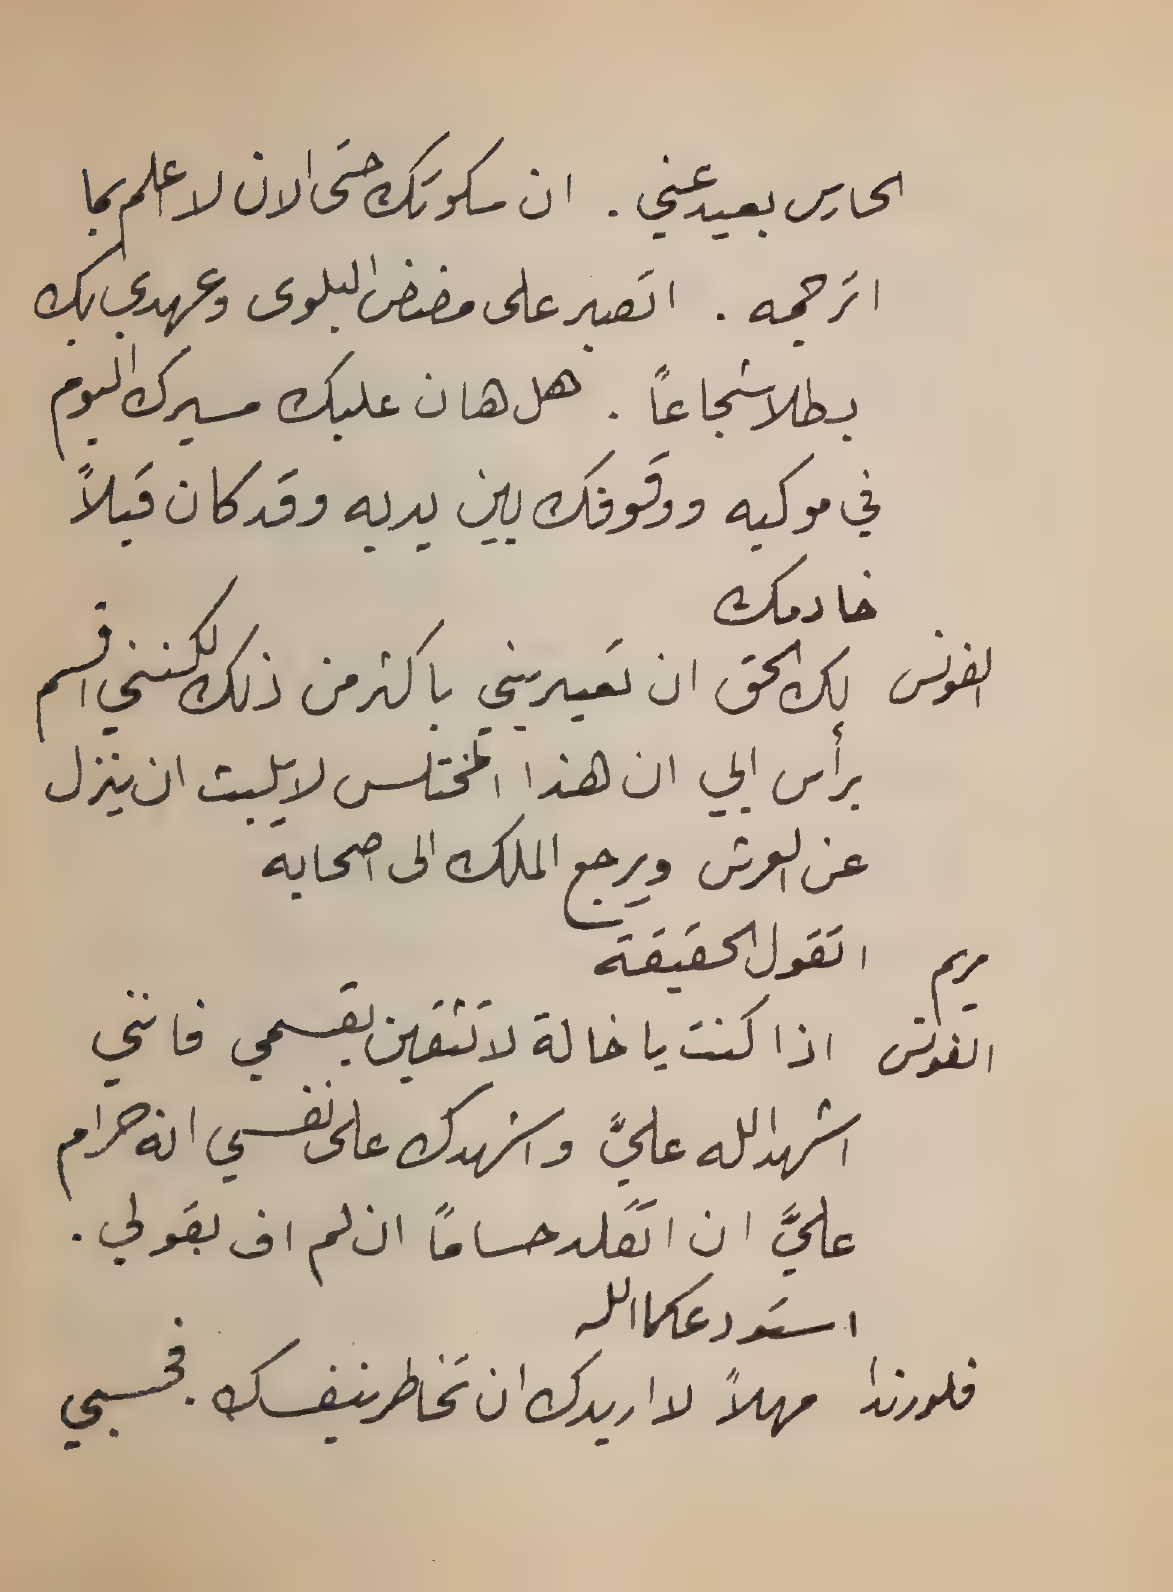 الحارس بعيد عني . ان سكوتك حتى الان لا اعلم بما
اترجمه . اتصبر على مضض البلوى وعهدي بك
بطلا شجاعاً . هل هان عليك مسيرك اليوم
في موكبه ووقوفك بين يديه وقد كان قبلاً
خادمك
الفونس لك الحق ان تعيريني باكثر من ذلك لكنني اقسم
برأس ابي ان هذا المختلس لا يلبث ان ينزل
عن العرش ويرجع الملك الى اصحابه
مريم اتقول الحقيقة
الفونس اذا كنت يا خالة لا تثقين بقسمي فانني
اشهد الله عليَّ واشهدك على نفسي انه حرام
عليَّ ان اتقلد حساماً ان لم اف بقولي .
استودعكما الله
فلورندا مهلاً لا اريدك ان تخاطر بنفسك . فحسبي